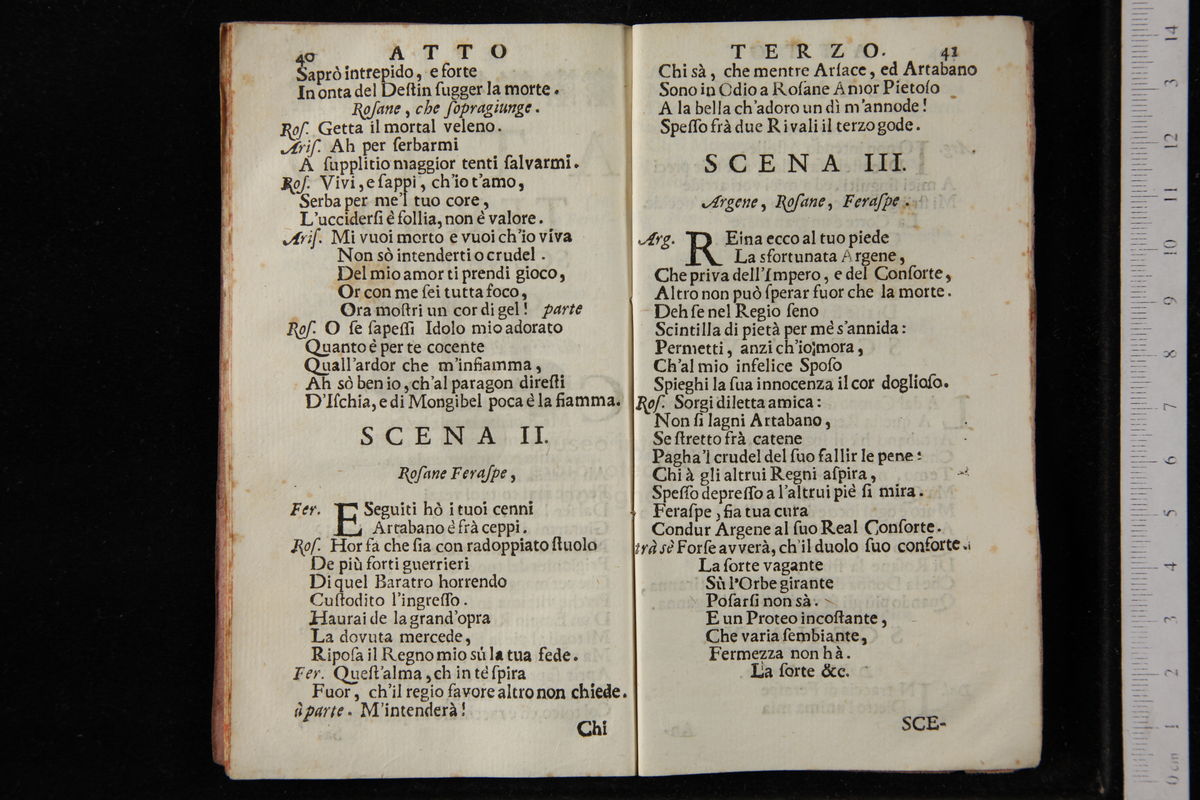 40 ATTO
Saprò intrepido, e forte
In onta del Deſtin ſugger la morte.
Roſane, che ſopragiunge.
Roſ. Getta il mortal veleno.
Ariſ. Ah per ſerbarmi
A ſupplitio maggior tenti ſalvarmi.
Roſ. Vivi, e ſappi, ch'io t'amo,
Serba per me'l tuo core,
L'ucciderſi è follia, non è valore.
Ariſ. Mi vuoi morto e vuoi ch'io viva
Non sò intenderti o crudel.
Del mio amor ti prendi gioco,
Or con me ſei tutta foco,
Ora moſtri un cor di gel! parte
Roſ. O ſe ſapeſſi Idolo mio adorato
Quanto è per te cocente
Quall'ardor che m'infiamma,
Ah sò ben io, ch'al paragon direſti
D'Iſchia, e di Mongibel poca è la fiamma.
SCENA II.
Roſane Feraſpe,
Fer. ESeguiti hò i tuoi cenni
Artabano è frà ceppi.
Roſ. Hor fa che ſia con radoppiato ſtuolo
De più forti guerrieri
Di quel Baratro horrendo
Cuſtodito l'ingreſſo.
Haurai de la grand'opra
La dovuta mercede,
Ripoſa il Regno mio sù la tua fede.
Fer. Queſt'alma, ch in tè ſpira
Fuor, ch'il regio favore altro non chiede.
à parte. M'intenderà!
Chi
TERZO. 41
Chi sà, che mentre Arſace, ed Artabano
Sono in Odio a Roſane Amor Pietoſo
A la bella ch'adoro un dì m'annode!
Speſſo frà due Rivali il terzo gode.
SCENA III.
Argene, Roſane, Feraſpe.
Arg. REina ecco al tuo piede
La sfortunata Argene,
Che priva dell'Impero, e del Conſorte,
Altro non può ſperar fuor che la morte.
Deh ſe nel Regio ſeno
Scintilla di pietà per mè s'annida:
Permetti, anzi ch'io mora,
Ch'al mio infelice Spoſo
Spieghi la ſua innocenza il cor doglioſo.
Roſ. Sorgi diletta amica:
Non ſi lagni Artabano,
Se ſtretto frà catene
Pagha'l crudel del ſuo fallir le pene:
Chi à gli altrui Regni aſpira,
Speſſo depreſſo a l'altrui piè ſi mira.
Feraſpe, ſia tua cura
Condur Argene al ſuo Real Conſorte.
trà sè Forſe avverà, ch'il duolo ſuo conforte.
La ſorte vagante
Sù l'Orbe girante
Poſarſi non sà.
E un Proteo incoſtante,
Che varia ſembiante,
Fermezza non hà.
La ſorte &c.
SCE-